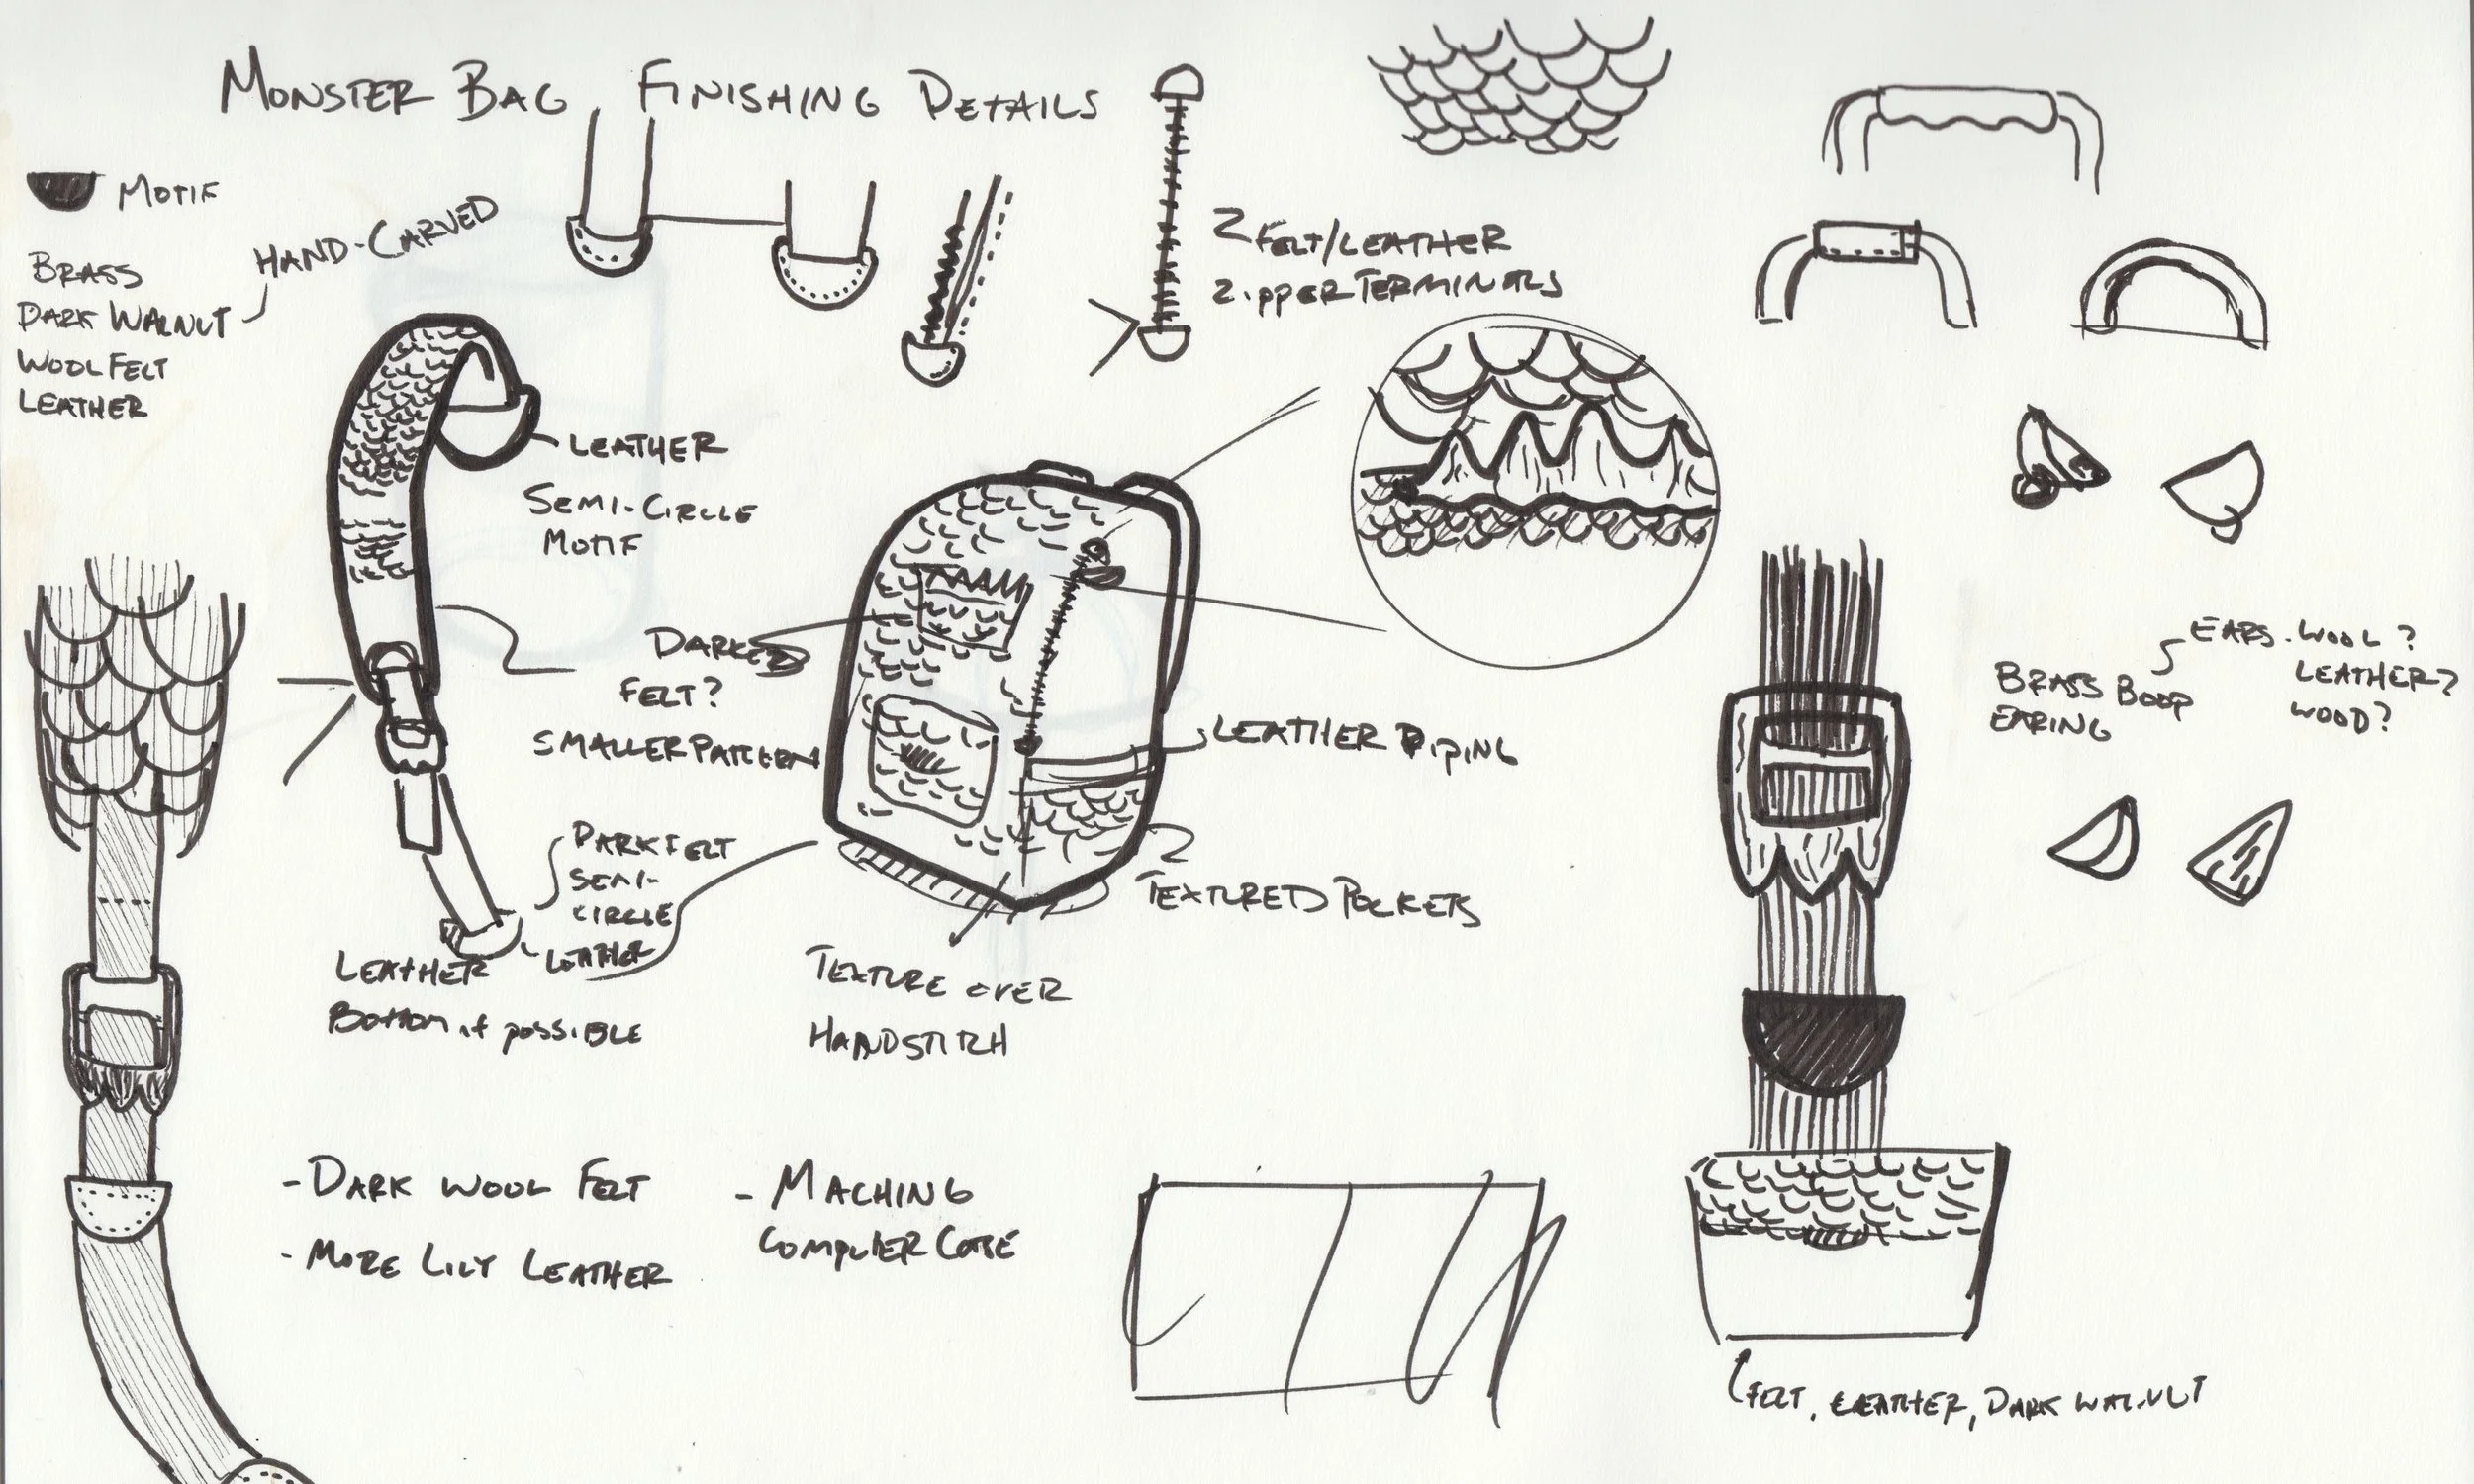 MONSTER BAG FINISHING DETAILS
MOTIF
HAND-CARVED
BRASS
DARK WALNUT
WOOL FELT
LEATHER
2 FELT/LEATHER
ZIPPER TERMINALS
LEATHER
SEMI-CIRCLE
MOTIF
DARK
FELT?
SMALLER PATTERN
LEATHER PIPING
EARS. WOOL?
LEATHER?
WOOD?
BRASS
EARING
DARK FELT
SEMI-
CIRCLE
LEATHER
LEATHER
BOTTOM if possiBLE
TEXTURED POCKETS
TEXTURE OVER
HANDSTITCH
- DARK WOOL FELT
- MORE LILY LEATHER
- MACHING
COMPUTER CASE
FELT, LEATHER, DARK WALNUT